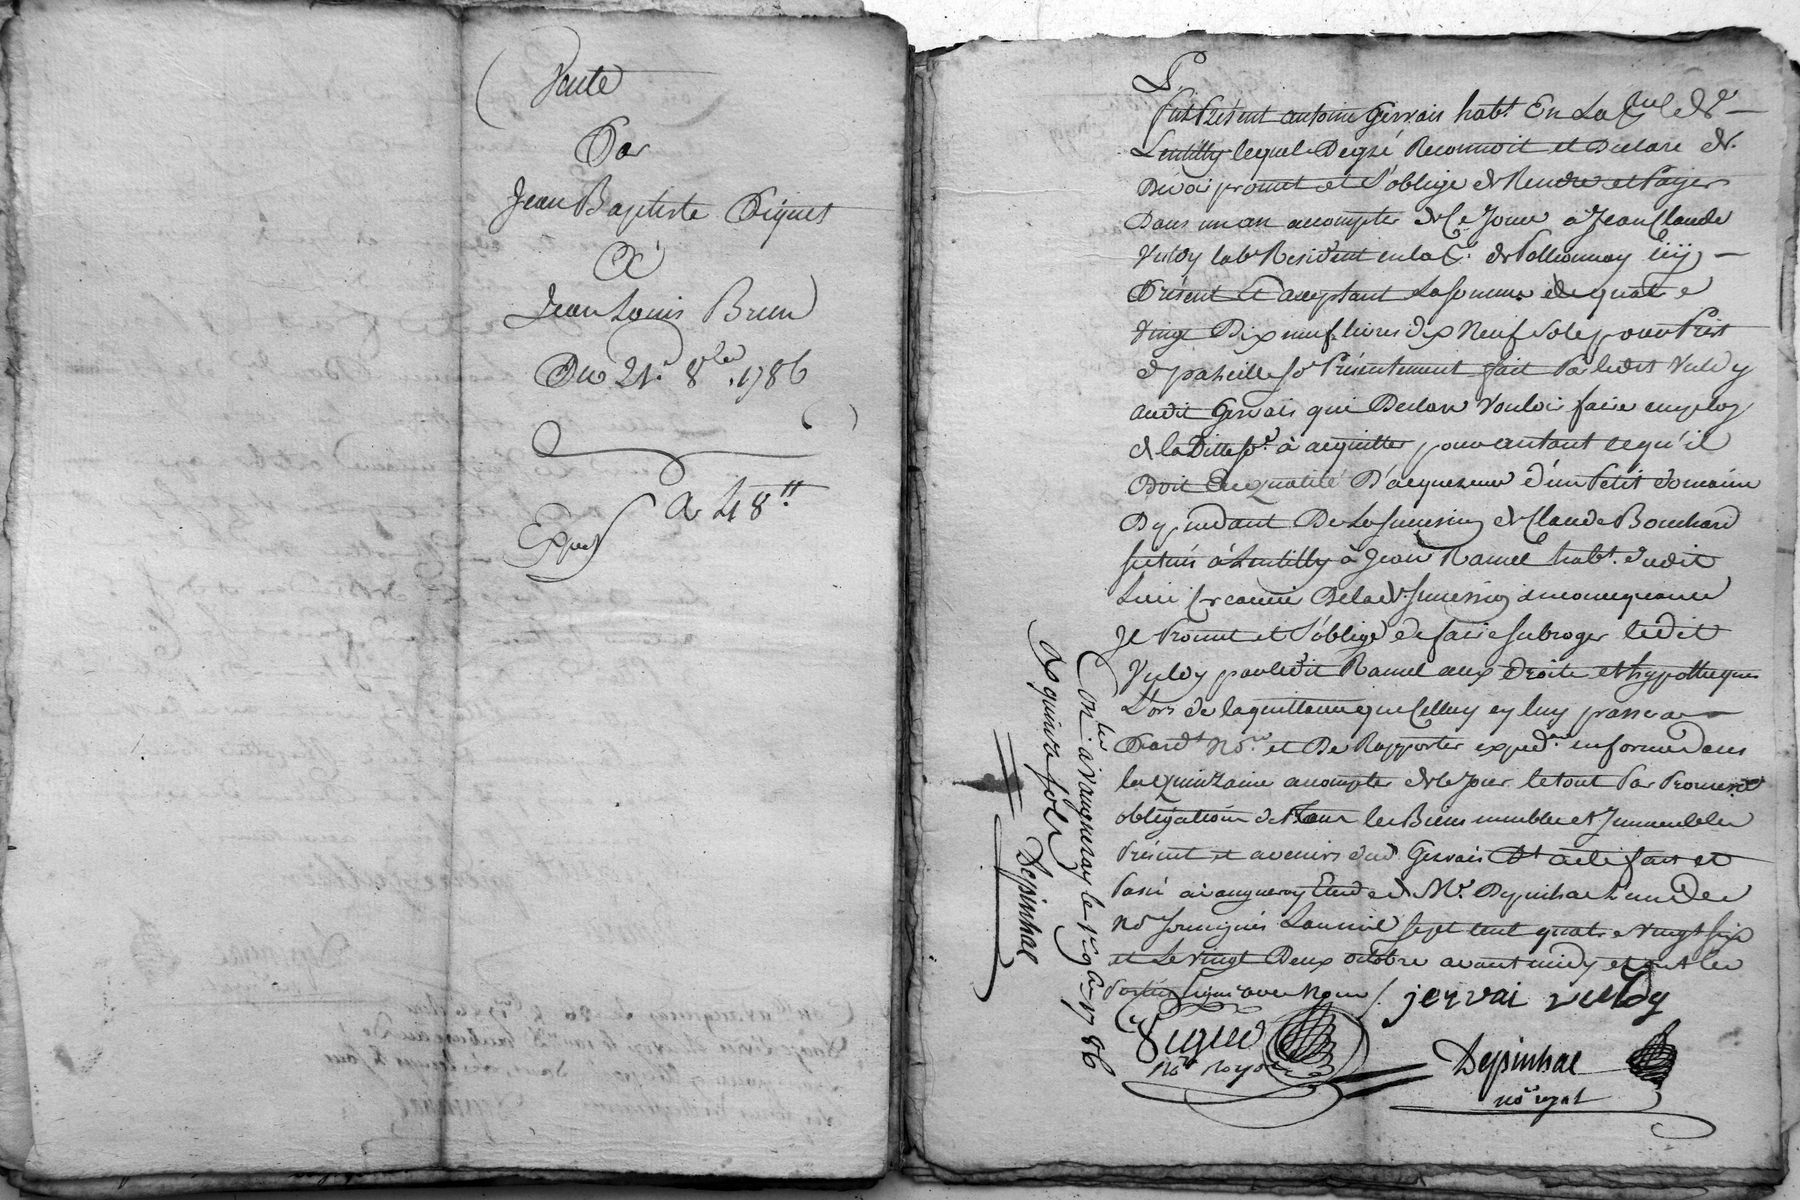 Vente
Par
Jean Baptiste Piquet
A
Jean Louis Brun
Du 21e 8bre 1786
a 48tt
Exped
Fut Présent antoine Gervais habt En La
Lentilly lequel De gré Reconnoit et Declare
Devoir promet et s'oblige de Rendre et Payer
Dans un an a compter de Ce Jour a Jean Claude
Vuldy labr Resident en la de Pollionnay icy
Présent Et acceptant La somme de quatre
vingt Dix neuf livres dix Neuf sols pour Prêt
de pareille so Présentement fait Par ledit Vuldy
audit Gervais qui Declare Vouloir faire employ
de la Ditte so à acquitter pour autant ce qu'il
Doit En qualité D'acquereur d'un Petit domaine
Dependant De La succession de Claude Bouchard
situé à Lentilly à Jean Ramel habt dudit
Lieu De la de succession
Il Promet et s'oblige de faire subroger ledit
Vuldy par ledit Ramel aux droits et hypotheques
Lors de la quittance que Celluy cy luy passera
Pardt Nore et De Rapporter expedon en forme dans
la quinzaine a compter de ce jour le tout Par Promesse
obligation de tous les Biens meubles et Immeubles
Présent et avenirs dud Gervais Dt acte fait et
Passé a vaugneray Etude de Me Depinhac L'un des
Nres soussignés L'an mil sept cent quatre vingt six
et Le vingt Deux octobre avant midy et ont les
Parties signé avec Nous
jervai vuldy
Piquet
Nre Royal
Depinhac
nore royal
Conlé a vaugneray le 1er 9bre 1786
quinze sols
Depinhac